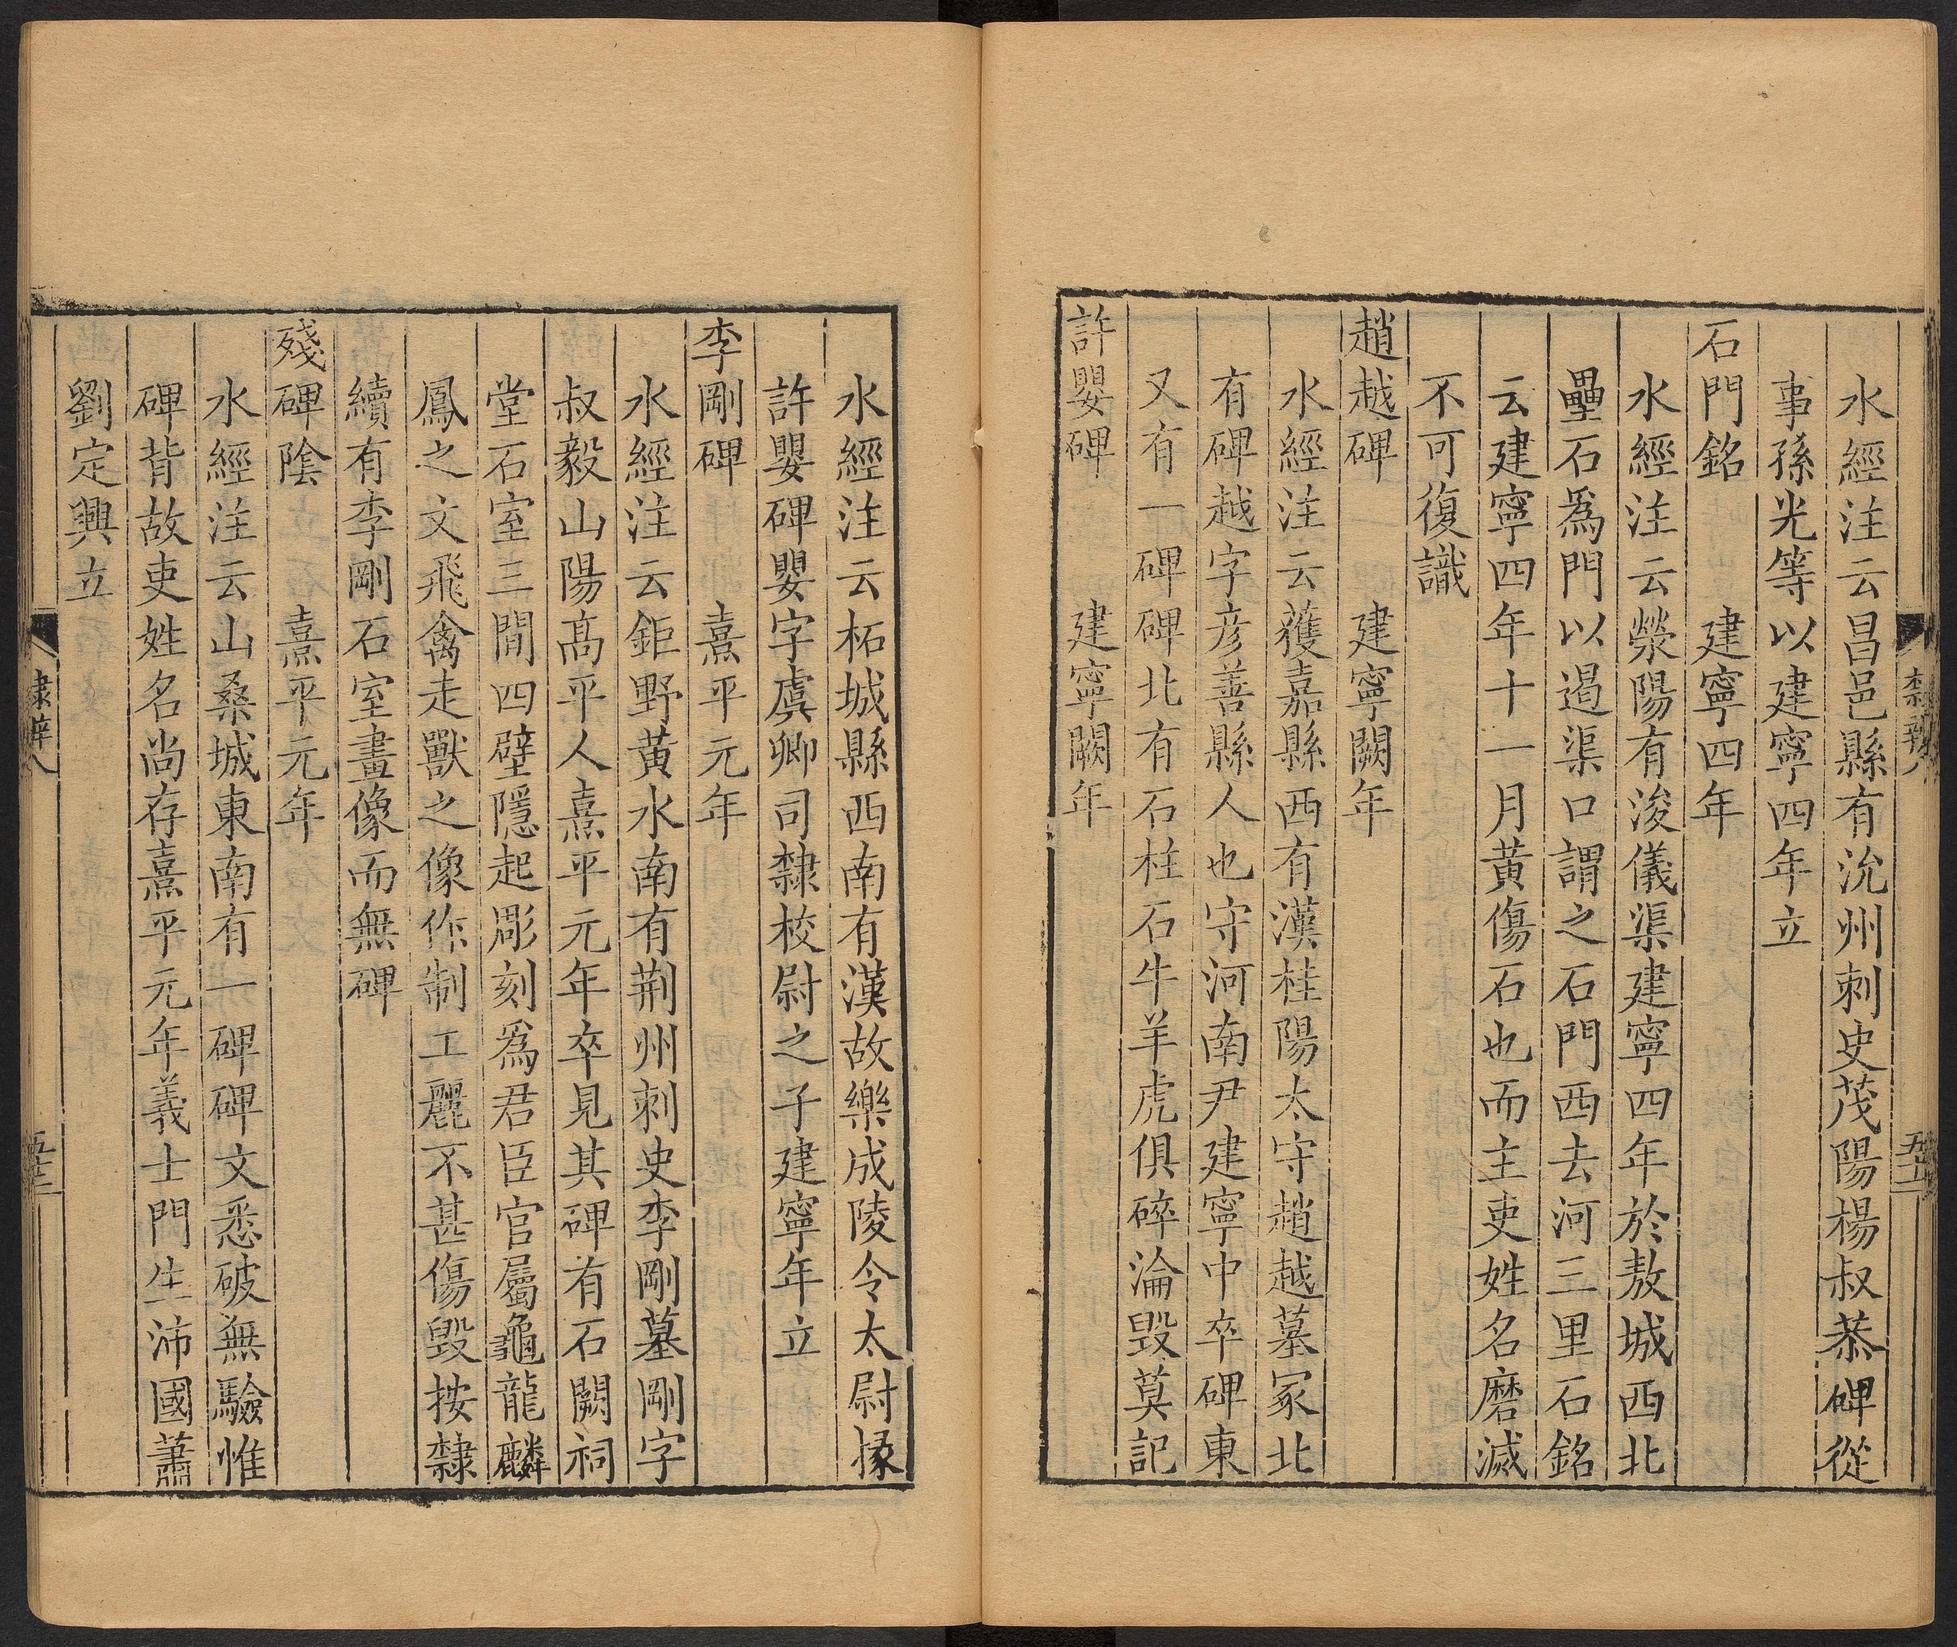 水經注云昌邑縣有沇州刺史茂陽楊叔恭碑從
事孫光等以建寧四年立
石門銘　建寧四年
水經注云滎陽有浚儀渠建寧四年於敖城西北
壘石為門以遏渠口謂之石門西去河三里石銘
云建寧四年十一月黃傷石也而主吏姓名磨滅
不可復識
趙越碑　建寧闕年
水經注云獲嘉縣西有漢桂陽太守趙越墓冢北
有碑越字彥善縣人也守河南尹建寧中卒碑東
又有一碑碑北有石柱石牛羊虎俱碎淪毀莫記
許嬰碑　建寧闕年
水經注云柘城縣西南有漢故樂成陵令太尉掾
許嬰碑嬰字虞卿司隸校尉之子建寧年立
李剛碑　熹平元年
水經注云鉅野黃水南有荆州刺史李剛墓剛字
叔毅山陽高平人熹平元年卒見其碑有石闕祠
堂石室三間四壁隱起彫刻為君臣官屬龜龍麟
鳳之文飛禽走獸之像作制工麗不甚傷毀按隸
續有李剛石室畫像而無碑
殘碑陰　熹平元年
水經注云山桑城東南有一碑碑文悉破無驗惟
碑背故吏姓名尚存熹平元年義士門生沛國蕭
劉定興立
隸辨八